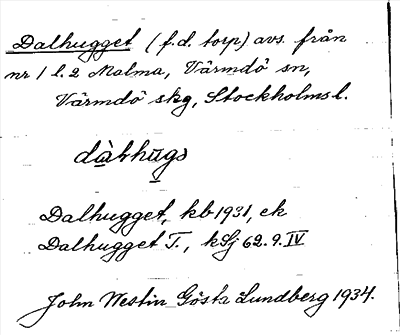 Dalhugget (f.d. torp) avs. från
nr 1 l. 2 Malma, Värmdö sn,
Värmdö skg, Stockholms l.
Dalhugget, kb 1931, ek
Dalhugget T., kSj 62.9.IV
John Westin Gösta Lundberg 1934.